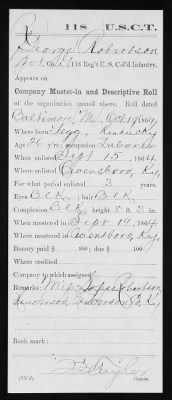 R 118 U.S.C.T.
George Robertson
Pvt., Co. , 118 Reg't U. S. Col'd Infantry.
Appears on
Company Muster-in and Descriptive Roll
of the organization named above. Roll dated
Baltimore, Md., Oct 186
Where born Kentucky
Age 26 y'rs; occupation Laborer
When enlisted Sept 15, 1864
Where enlisted Owensboro, Ky.
For what period enlisted 3 years.
Eyes Blk; hair Blk
Complexion Blk; height 5 ft. 2 in.
When mustered in Sept 19, 1864
Where mustered in Owensboro, Ky.
Bounty paid $ 100; due $ 100
Where credited
Company to which assigned
Remarks: Robertson
Henderson, Henderson Co Ky
Book mark:
Copyist.